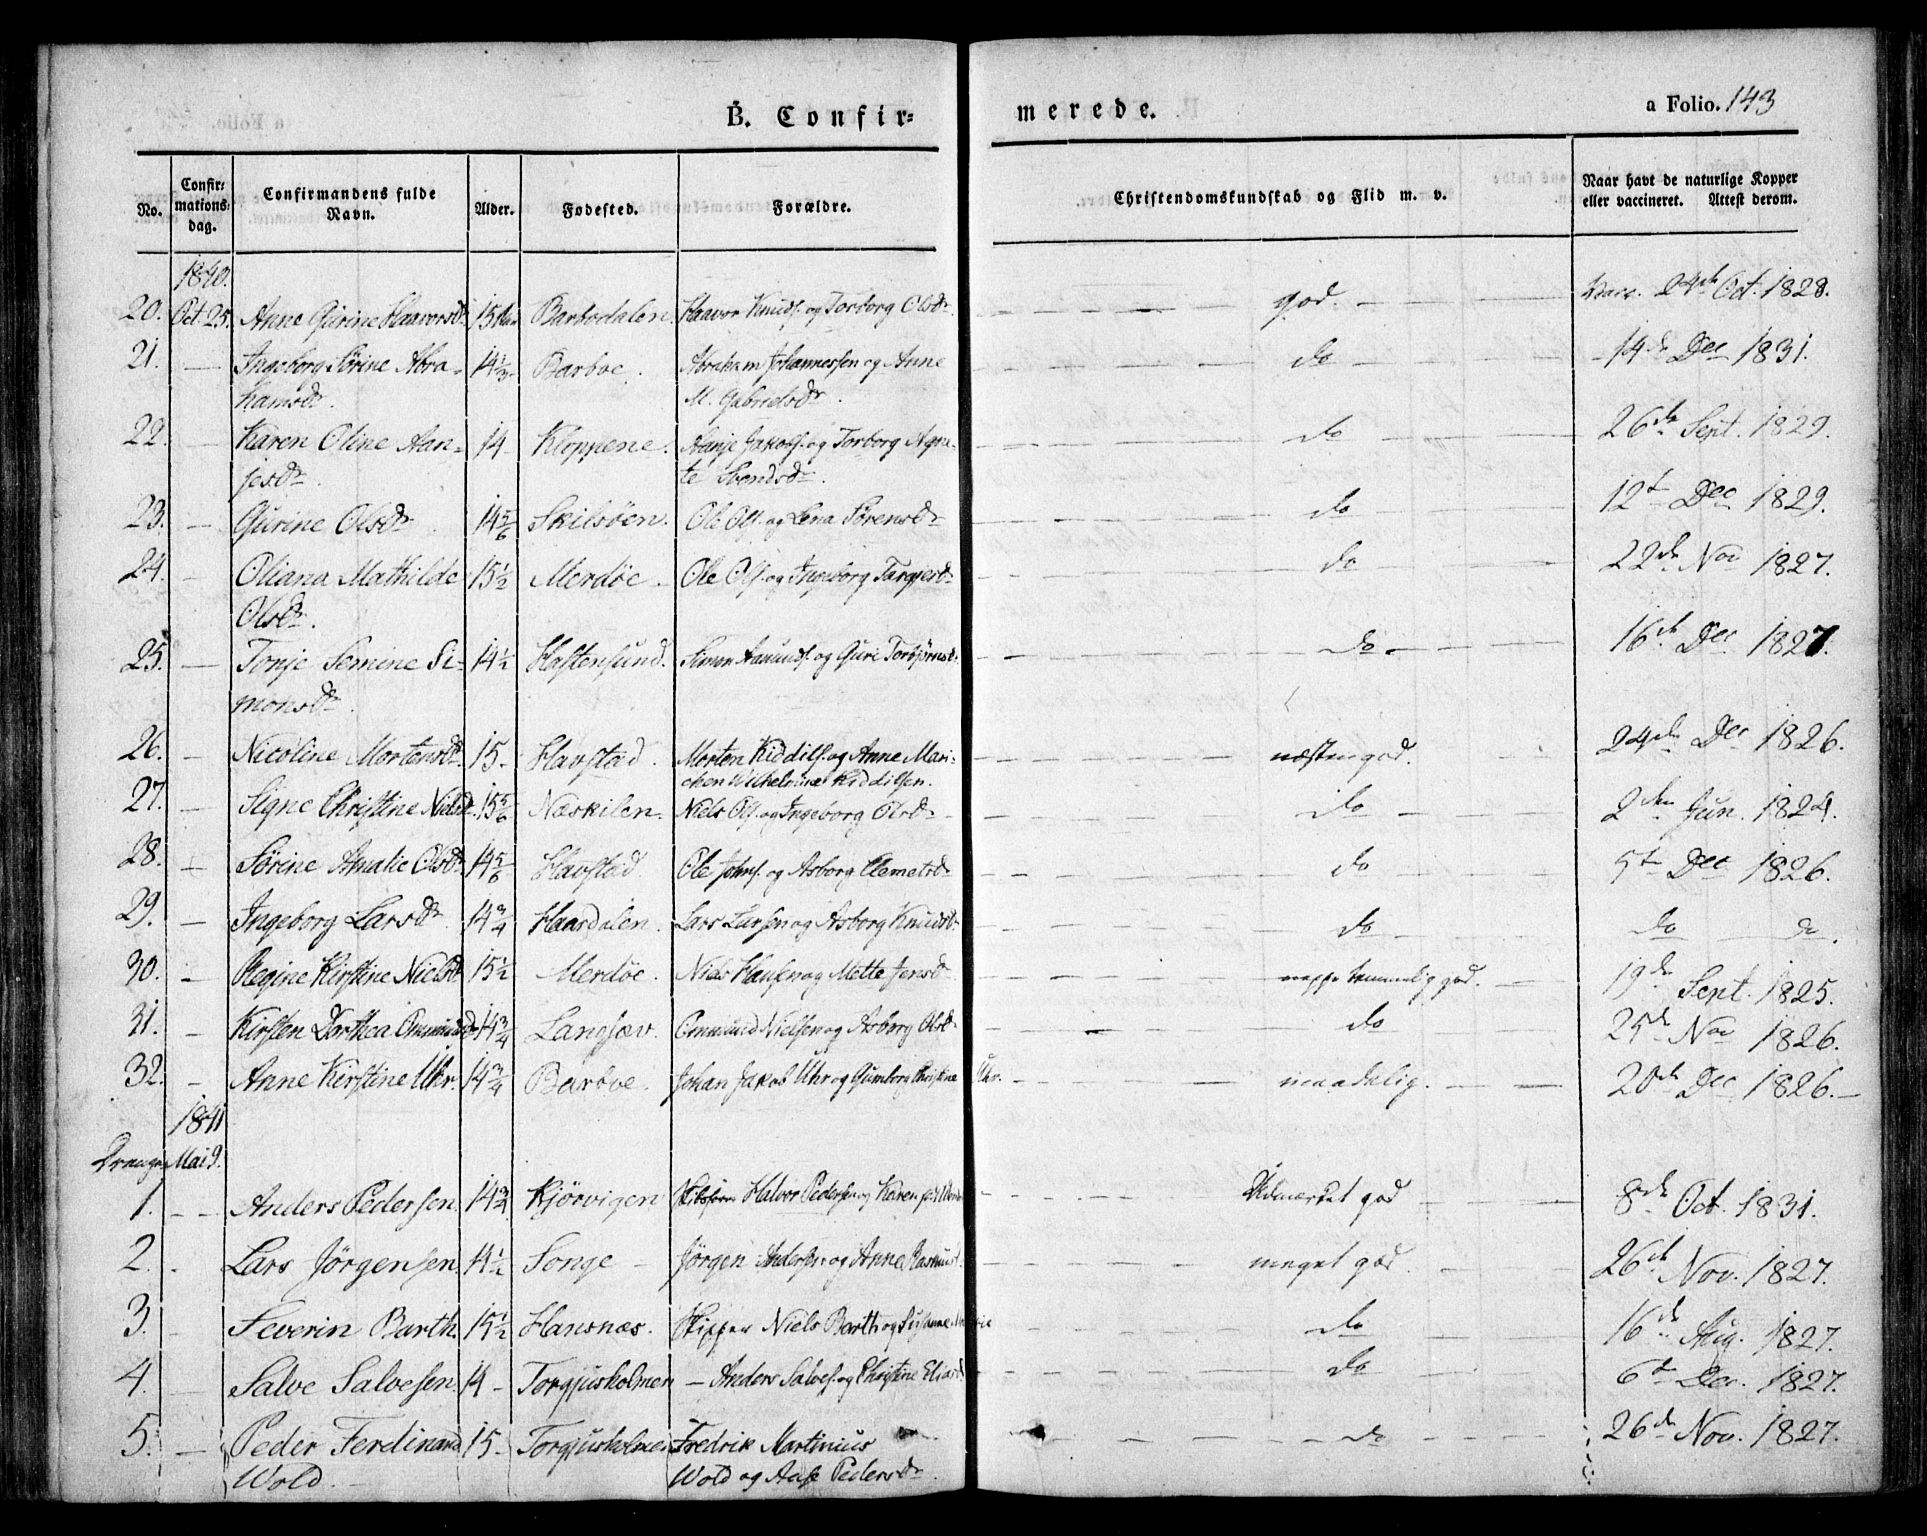 B. Confir= merede. a Folio. 143
No. Confir=mations=dag. Confirmandens fulde Navn. Alder. Fødested. Forældre. Christendomskundskab og Flid m. v. Naar havt de naturlige Kopper eller vaccineret. Attest derom.
1840.
20. Oct 25. Anne Gurine Haavorsdr 15 Barbodalen. Haavor Knuds. og Torborg Olsdr. god. Vacc. 24de Oct. 1828.
21. — Ingeborg Sørine Abra= 14 1/3 Barboe. Abraham Johannessen og Anne do 14de Dec 1831.
hamsdr. M. Gabrielsdr.
22. — Karen Oline Aan= 14 Kloppene. Aanje Jakobs. og Torborg Agna= do 26de Sept. 1829.
jesdr. te Svendsdr.
23. — Gurine Olsdr. 14 5/6 Skilsöen. Ole Ols. og Lena Sørensdr do 12te Dec 1829.
24. — Oliana Mathilde 15 1/2 Merdöe. Ole Ols. og Ingeborg Targersdr do 22de Nov 1827.
Olsdr.
25. — Tonje Semine Si= 14 1/2 Hastensund. Simon Aanunds. og Guri Torbjørnsd. do 16de Dec 1827.
monsdr.
26. — Nicoline Mortensdr. 15 Havstad. Morten Kiddils. og Anne Mari= næsten god. 24de Dec 1826.
chen Wilhelmine Kiddilsen.
27. — Signe Christine Nielsd. 15 5/6 Næskilen. Niels Ols. og Ingeborg Olsdr do 2den Jun. 1824.
28. — Sørine Amalie Olsdr 14 5/6 Havstad. Ole Johns. og Asborg Clemetsdr do 5te Dec 1826.
29. — Ingeborg Larsdr 14 3/4 Haasdalen. Lars Larsen og Asborg Knudsd. do do do.
30. — Regine Kirstine Nielsd 15 1/2 Merdöe. Niels Hansen og Mette Jensd. neppe temmelig god. 19de Sept. 1825.
31. — Kirsten Dorthea Ommundsd 14 3/4 Langsæv. Ommund Nielsen og Asborg Olsd. do 25de Nov 1826.
32. — Anne Kirstine Uhr. 14 3/4 Barboe. Johan Jakob Uhr og Gumborg Christine Uhr. maadelig. 20de Dec 1826.
1841
Drenge Mai 9.
1. — Anders Pedersen 14 3/4 Kjörvigen Halvor Pedersen og Karen Udmærket god 8de Oct. 1831.
2. Lars Jörgensen. 14 1/2 Songe — Jörgen Andersen og Anne Rasmusd. meget god. 26de Nov. 1827.
3. — Severin Barth. 15 1/2 Hansnæs. Skipper Niels Barth og Susanne Marie do 16de Aug. 1827.
4. — Salve Salvesen. 14 Torgjusholmen — Anders Salves. og Christine Eliasd. do 6te Dec. 1827.
5. — Peder Ferdinand 15 Torgjusholmen Fredrik Martinius do 26de Nov. 1827.
Wold. Wold og Aase Pedersdr.